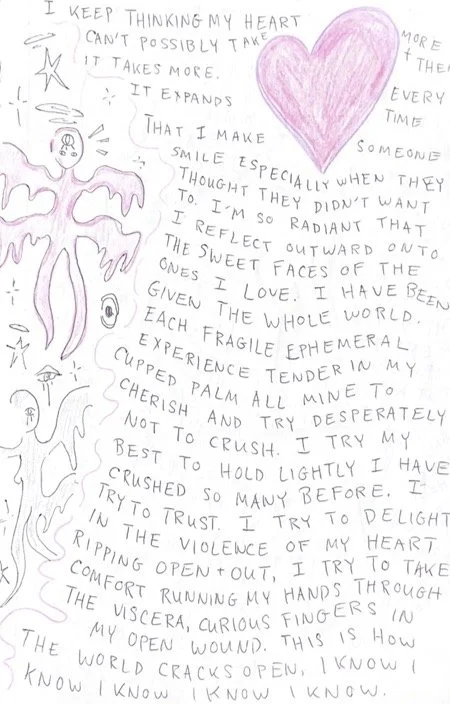 I KEEP THINKING MY HEART
CAN'T POSSIBLY TAKE MORE
IT TAKES MORE. + THEN
IT EXPANDS EVERY TIME
THAT I MAKE SOMEONE
SMILE ESPECIALLY WHEN THEY
THOUGHT THEY DIDN'T WANT
TO. I'M SO RADIANT THAT
I REFLECT OUTWARD ONTO
THE SWEET FACES OF THE
ONES I LOVE. I HAVE BEEN
GIVEN THE WHOLE WORLD.
EACH FRAGILE EPHEMERAL
EXPERIENCE TENDER IN MY
CUPPED PALM ALL MINE TO
CHERISH AND TRY DESPERATELY
NOT TO CRUSH. I TRY MY
BEST TO HOLD LIGHTLY I HAVE
CRUSHED SO MANY BEFORE. I
TRY TO TRUST. I TRY TO DELIGHT
IN THE VIOLENCE OF MY HEART
RIPPING OPEN + OUT, I TRY TO TAKE
COMFORT RUNNING MY HANDS THROUGH
THE VISCERA, CURIOUS FINGERS IN
MY OPEN WOUND. THIS IS HOW
THE WORLD CRACKS OPEN, I KNOW I
KNOW I KNOW I KNOW I KNOW.